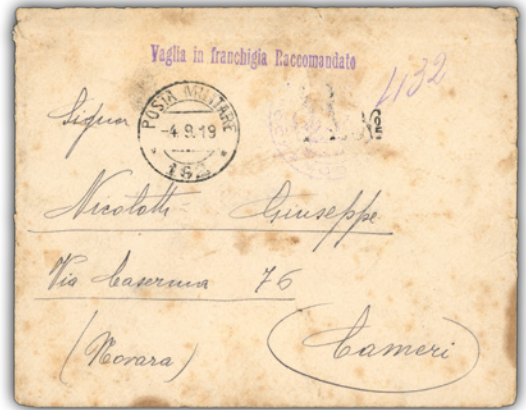 Vaglia in franchigia Raccomandato
4132
POSTA MILITARE
-4.9.19
162
Signor
Nicolotti Giuseppe
Via Caserma 76
(Novara) (Cameri)